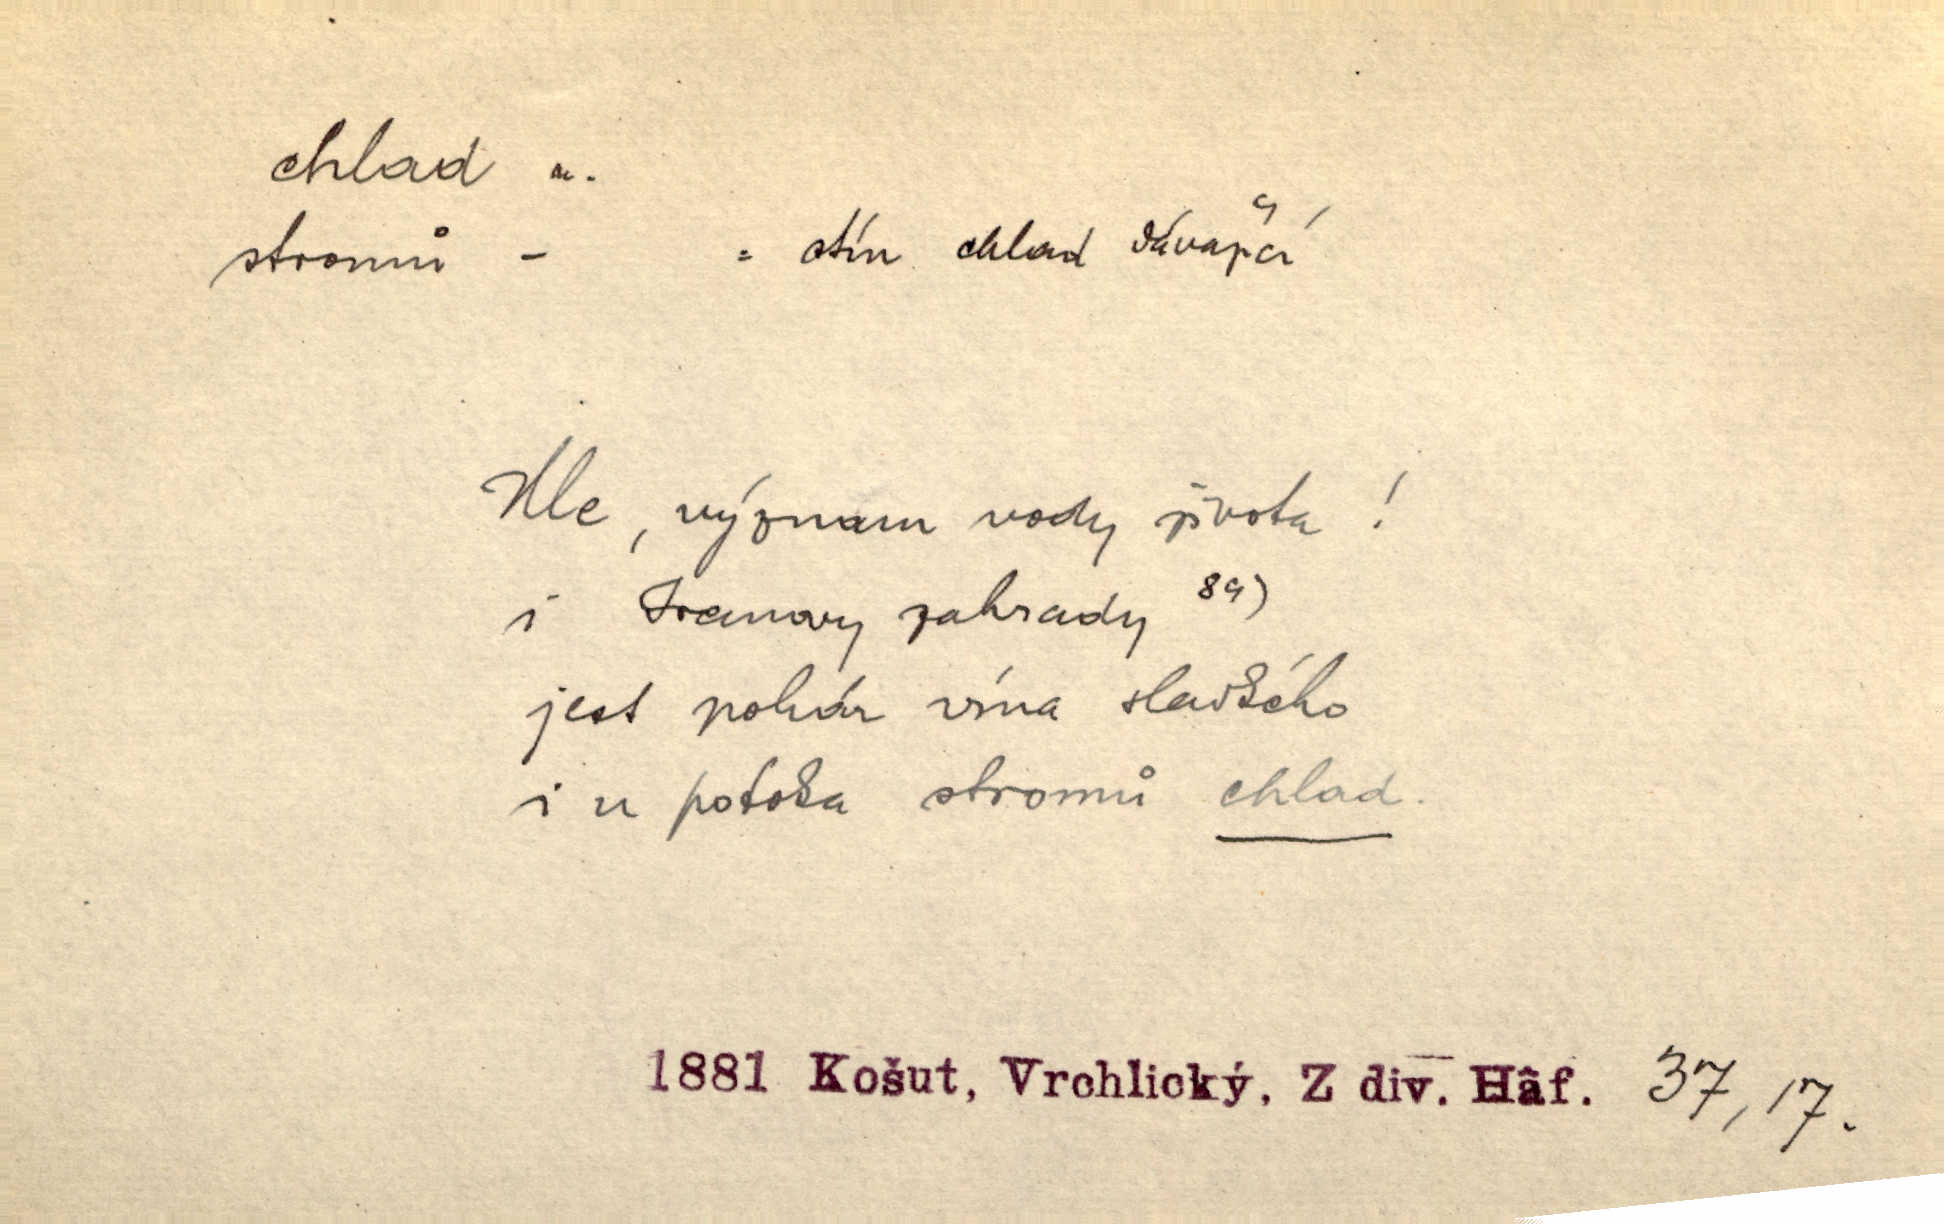 chlad m.
stromů - = stín chlad dávající
Hle, význam vody života!
i Iranovy zahrady 89)
jest pohár vína sladkého
i u potoka stromů chlad.
1881 Košut, Vrchlický, Z div. Hâf. 37, 17.